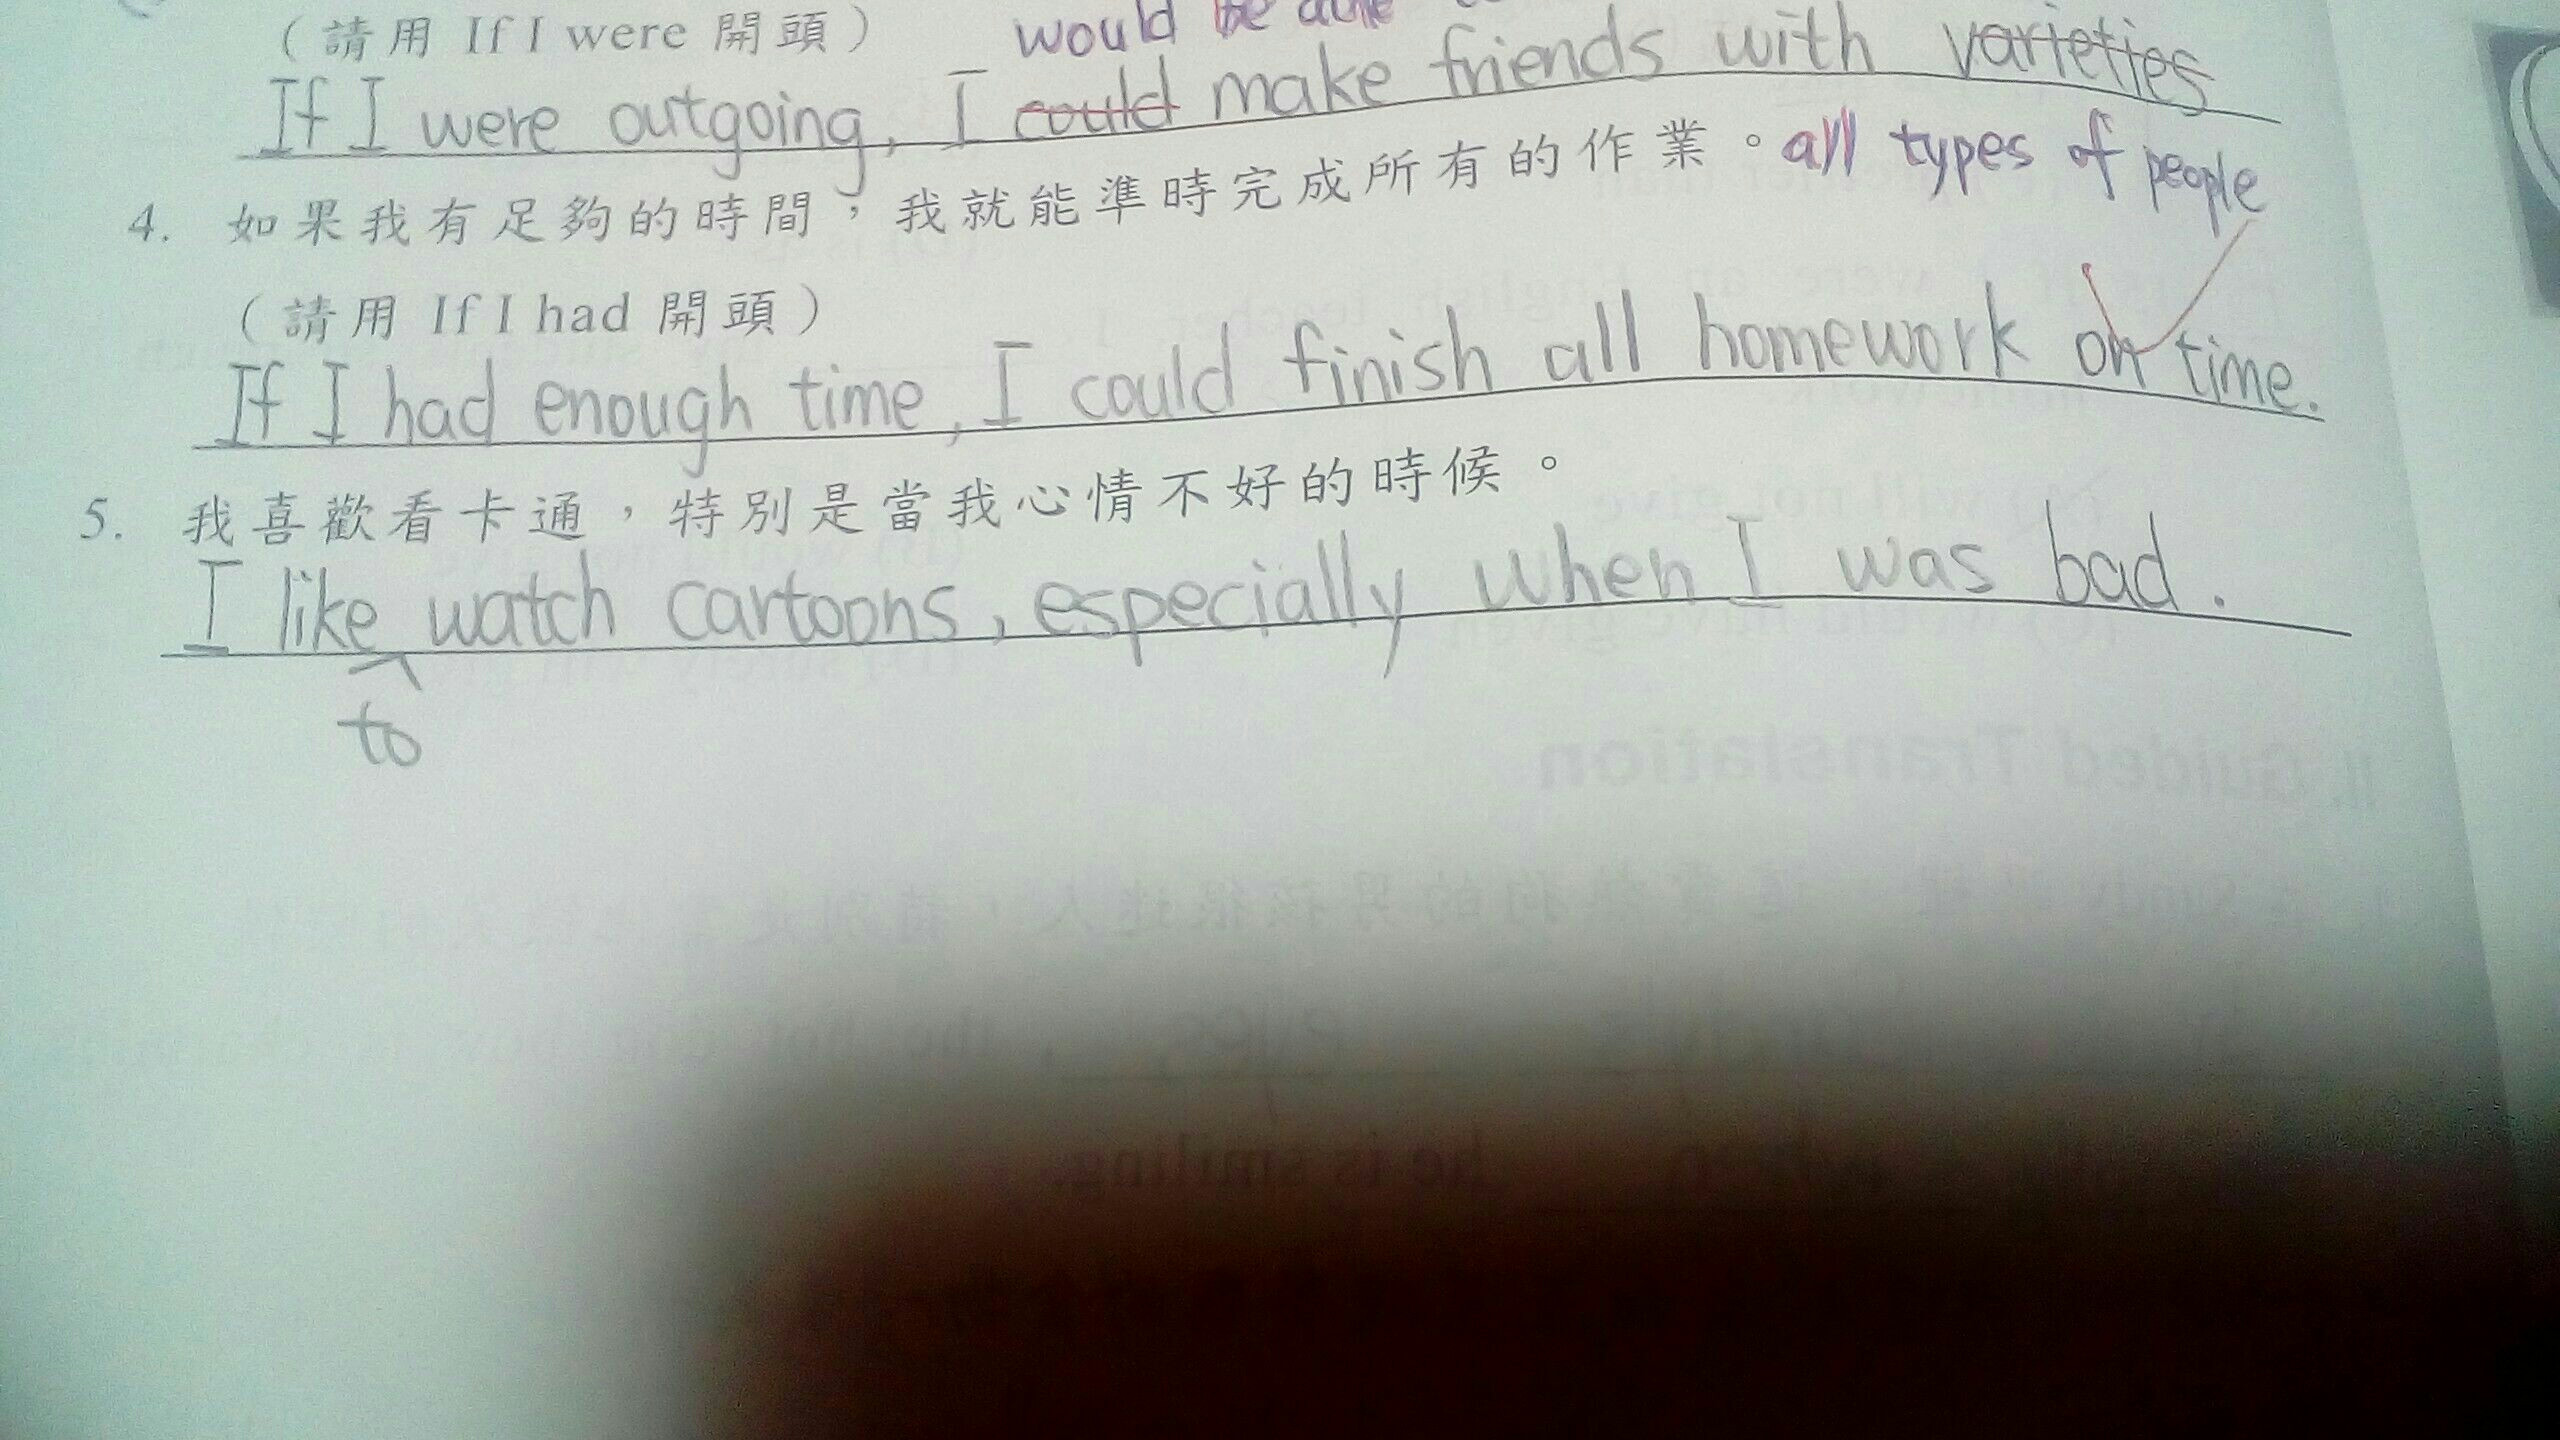 (請用 If I were 開頭)
would be able
If I were outgoing, I could make friends with varieties
all types of people
4. 如果我有足夠的時間，我就能準時完成所有的作業。
(請用 If I had 開頭)
If I had enough time, I could finish all homework on time.
5. 我喜歡看卡通，特別是當我心情不好的時候。
I like watch cartoons, especially when I was bad.
to
II. Guided Translation
he is smiling.